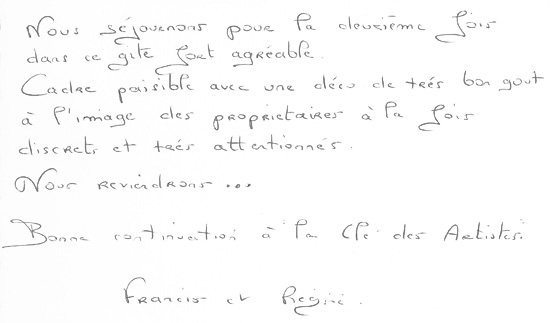 Nous séjournons pour la deuxième fois
dans ce gîte fort agréable.
Cadre paisible avec une déco de très bon goût
à l'image des propriétaires à la fois
discrets et très attentionnés.
Nous reviendrons ...
Bonne continuation à la Clé des Artistes.
Francis et Régine.